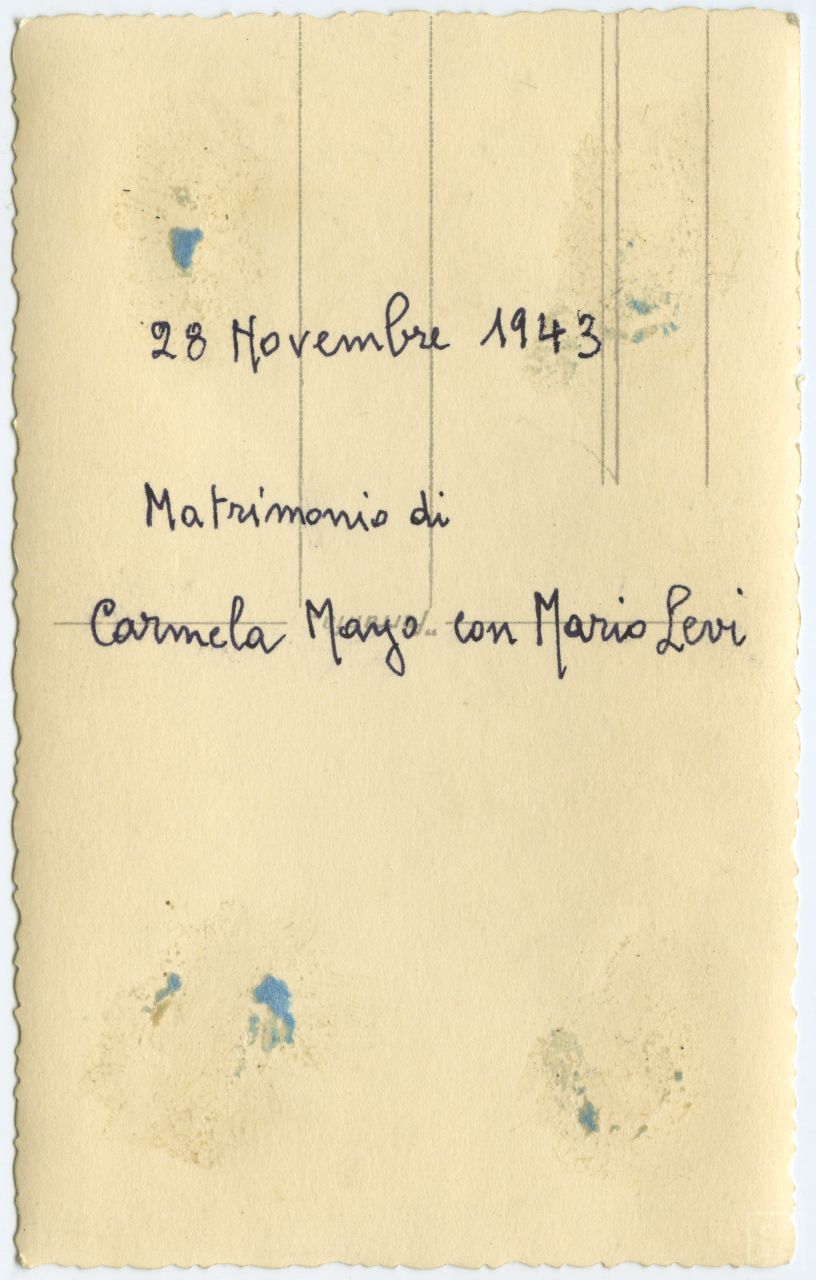 28 Novembre 1943
Matrimonio di
Carmela Mayo con Mario Levi